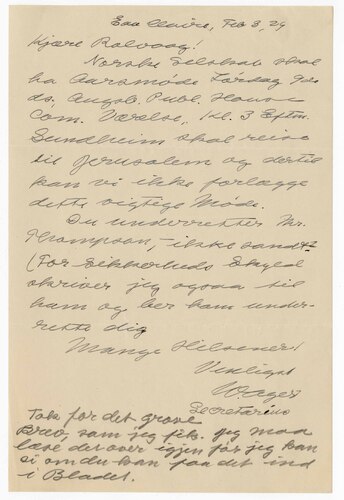 Eau Claire, Feb 3, 29
Kjære Rolvaag!
Norske Selskab skal
ha Aarsmøde Lørdag 9de
ds, Augsb. Publ. House
Com. Værelse, Kl. 3 Eftm.
Sundheim skal reise
til Jerusalem og dertil
kan vi ikke forlægge
dette vigtige Møde.
Du underretter Mr.
Thompson, – ikke sandt?
(For Sikkerheds Skyld
skriver jeg ogsaa til
ham og ber ham under-
rette dig
Mange Hilsener!
Venligst
Wager
Secretarius
Tak for det grove
Brev, som jeg fik. Jeg maa
læse det over igjen før jeg kan
si om du kan faa det ind
i Bladet.